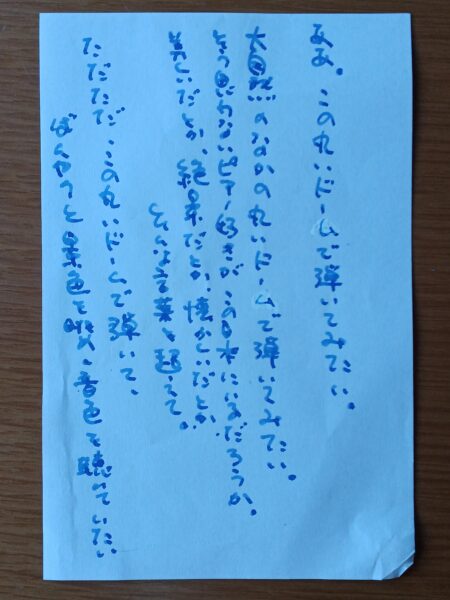 ああ。この丸いドームで弾いてみたい。
大自然のなかの丸いドームで弾いてみたい。
そう思わないピアノ好きが、この日本にいるだろうか。
美しいだとか、絶景だとか、懐かしいだとか、
そんな言葉を超えて。
ただただ、この丸いドームで弾いて、
ぼんやりと景色を眺め、音色を聴いていたい